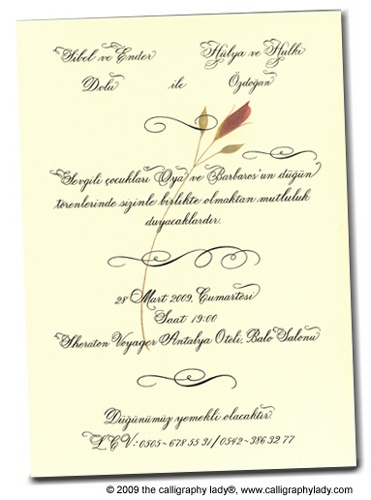 Sibel ve Ender Hülya ve Hulki
Dolu ile Özdoğan
Sevgili çocukları Oya ve Barbaros'un düğün
törenlerinde sizinle birlikte olmaktan mutluluk
duyacaklardır.
28 Mart 2009, Cumartesi
Saat 19:00
Sheraton Voyager Antalya Oteli, Balo Salonu
Düğünümüz yemekli olacaktır.
L.C.V: 0505-678 55 31 / 0542-386 32 77
© 2009 the calligraphy lady®, www.calligraphylady.com